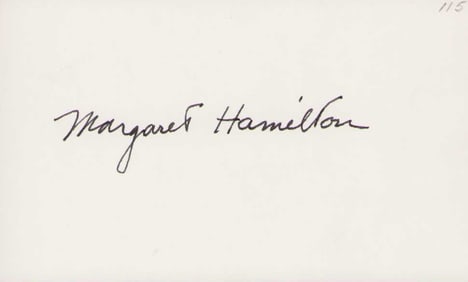 115
Margaret Hamilton